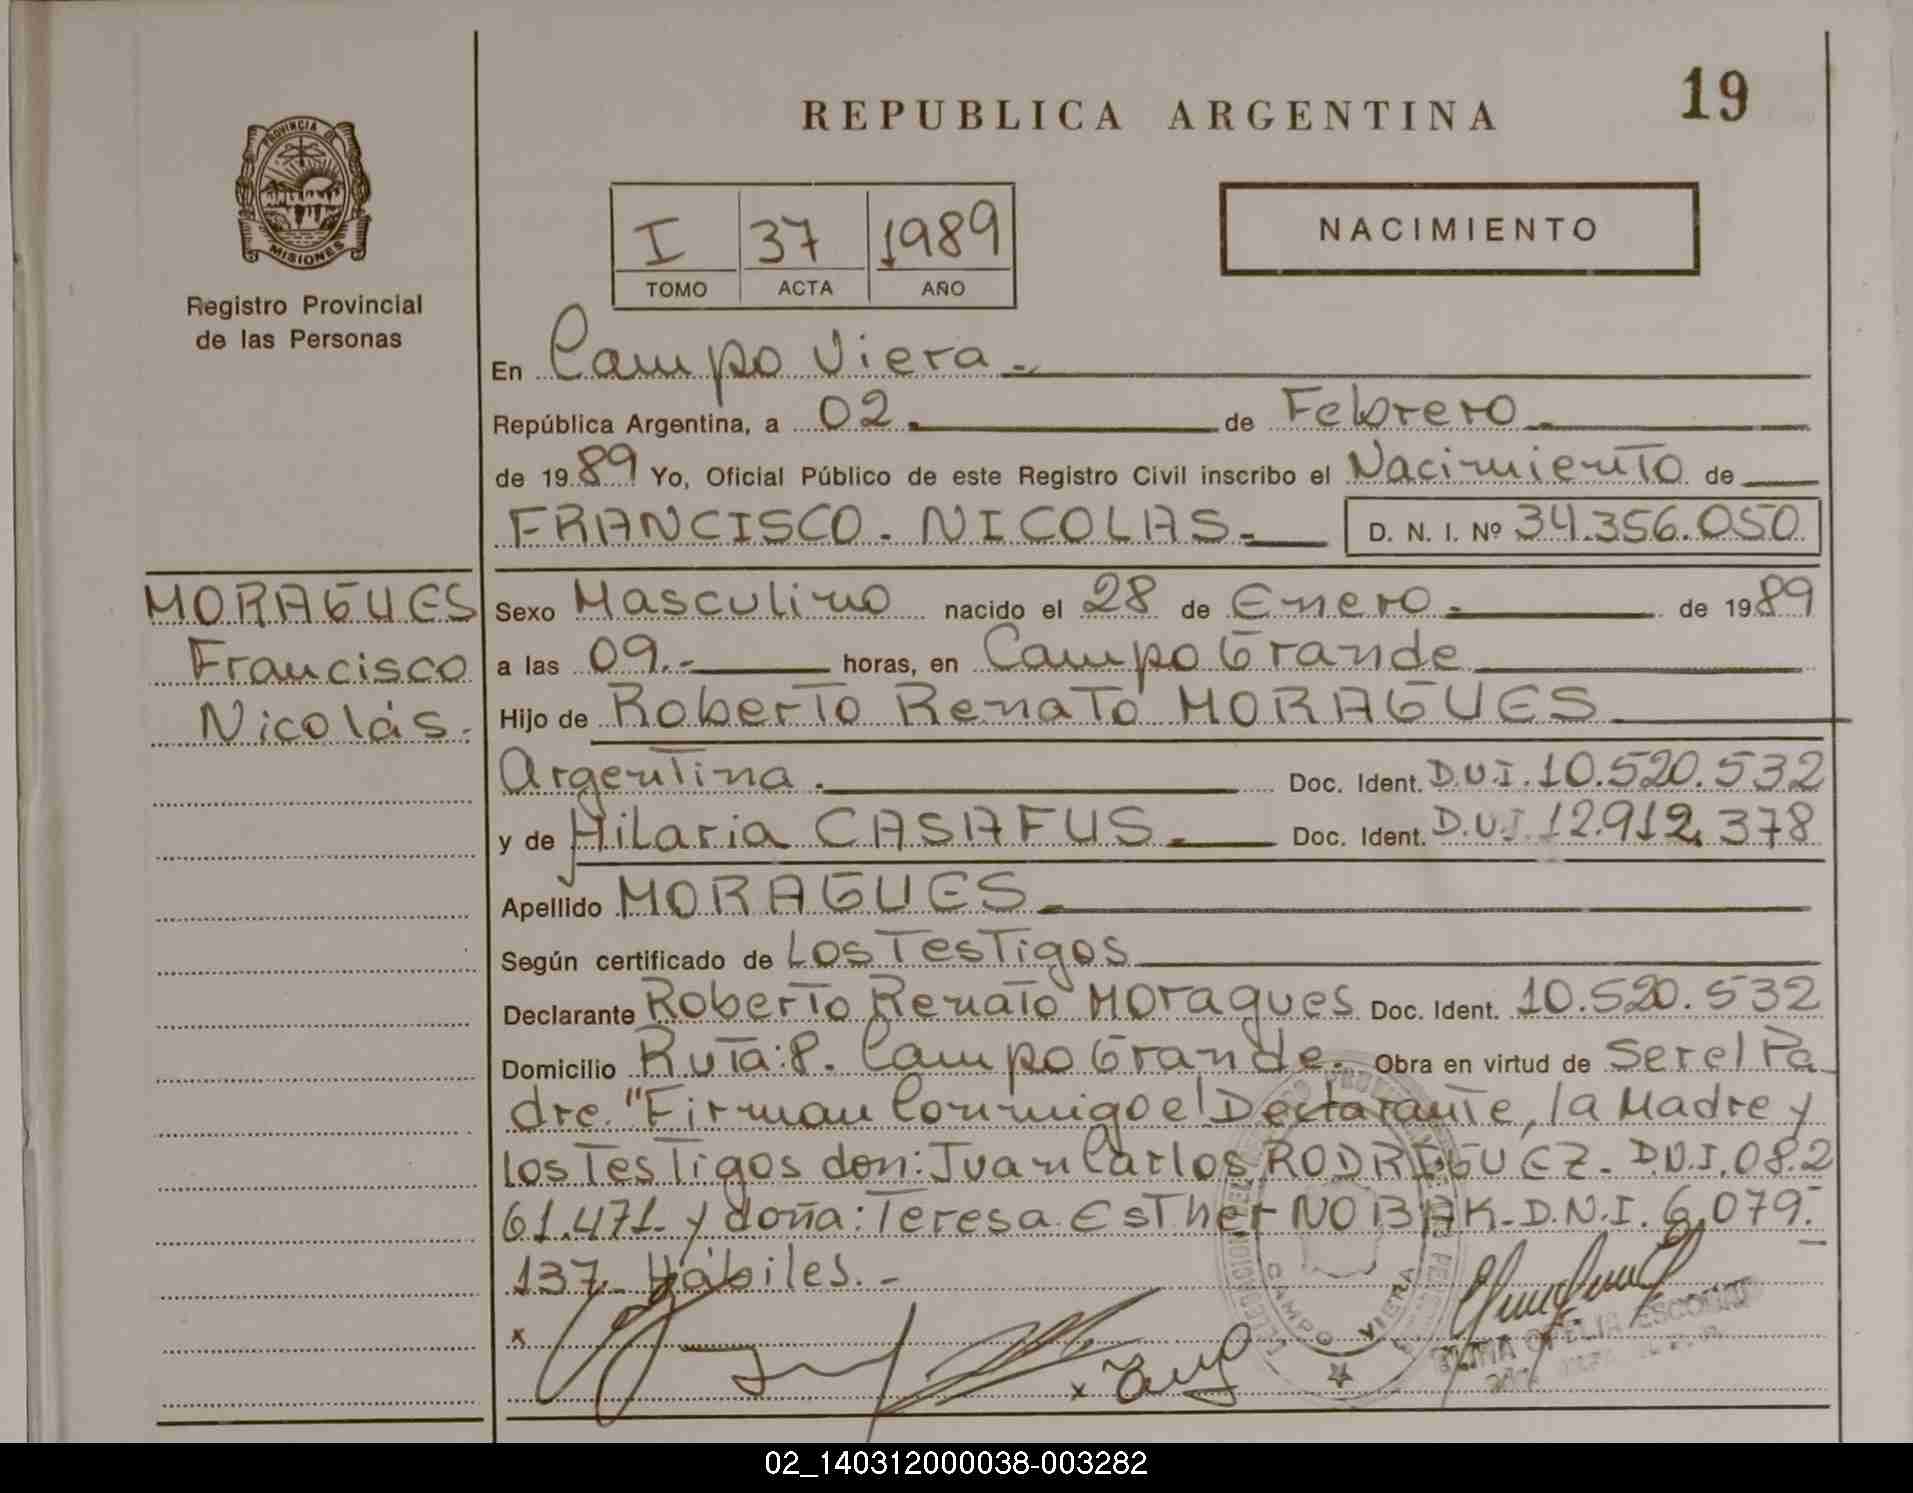 19
REPUBLICA ARGENTINA
PROVINCIA DE
MISIONES
Registro Provincial
de las Personas
I 37 1989
TOMO ACTA AÑO
NACIMIENTO
En Campo Viera.-
República Argentina, a 02 de Febrero
de 1989 Yo, Oficial Público de este Registro Civil inscribo el Nacimiento de
FRANCISCO - NICOLAS.- D. N. I. Nº 34.356.050
MORAGUES
Francisco
Nicolás.-
Sexo Masculino nacido el 28 de Enero.- de 1989
a las 09.- horas, en Campo Grande
Hijo de Roberto Renato MORAGUES
Argentina. Doc. Ident. D.N.I. 10.520.532
y de Hilaria CASAFUS.- Doc. Ident. D.N.I. 12.912.378
Apellido MORAGUES.-
Según certificado de Los Testigos
Declarante Roberto Renato Moragues Doc. Ident. 10.520.532
Domicilio Ruta: 8. Campo Grande. Obra en virtud de Ser el Pa
dre. "Firman Conmigo el Declarante, la Madre y
los Testigos don: Juan Carlos RODRIGUEZ- D.N.I. 08.2
61.471- y doña: Teresa Esther NOBAK- D.N.I. 6.079.-
137- Hábiles.-
CAMPO VIERA
02_140312000038-003282